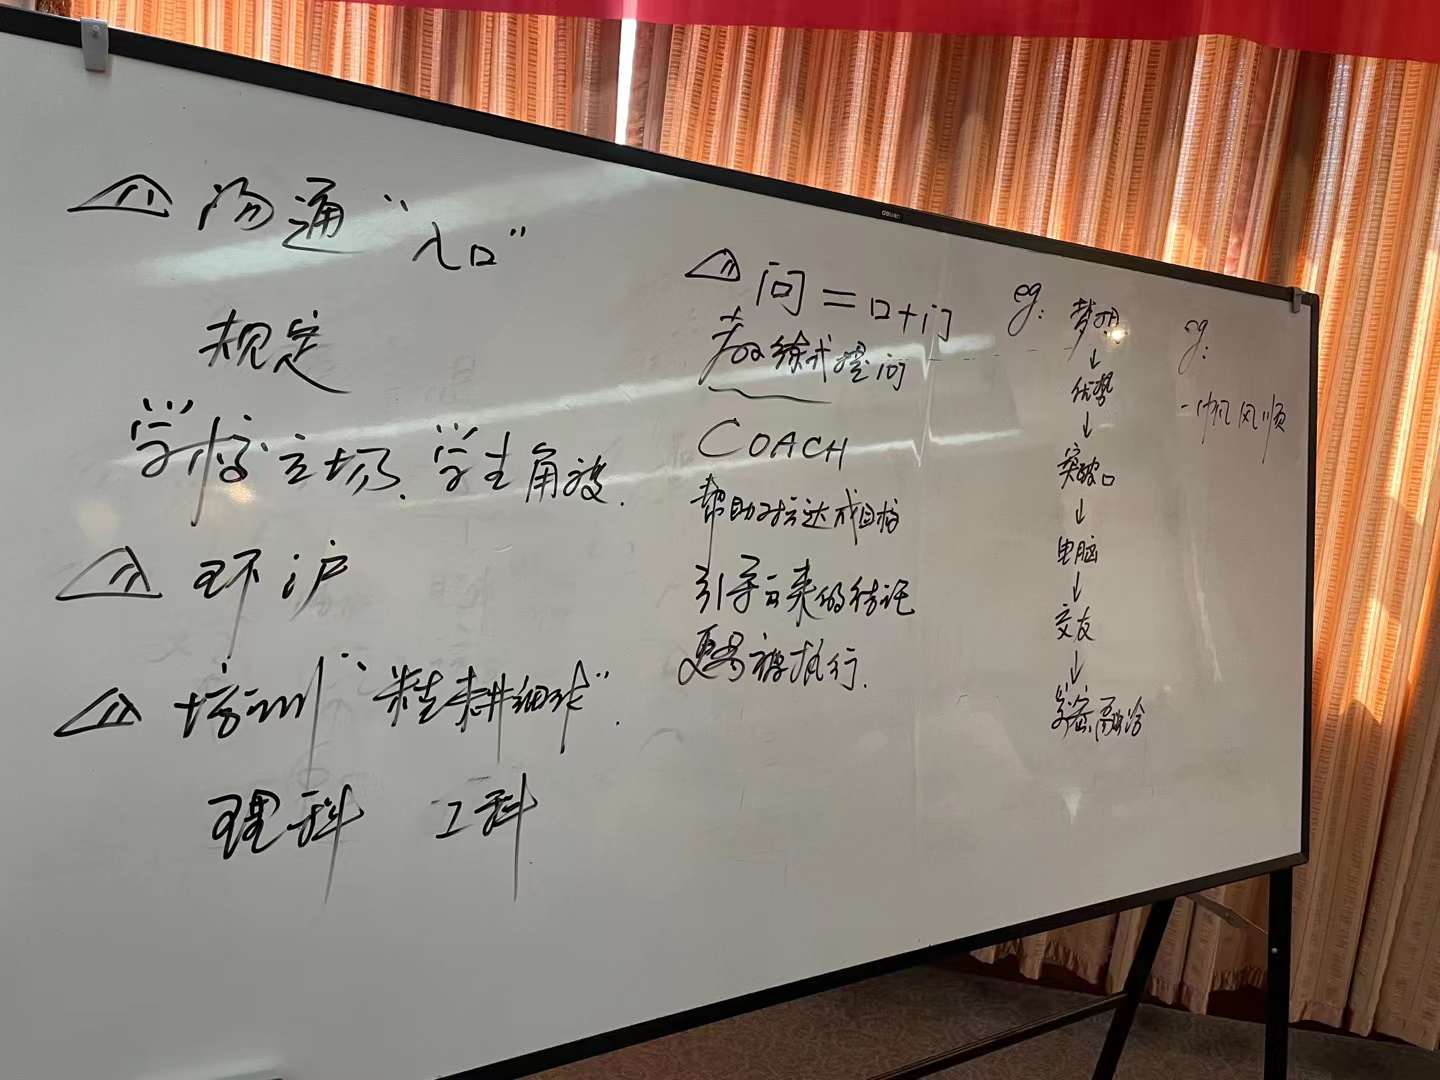 沟通“入口”
规定
学校立场、学生角度.
环沪
培训“精耕细作”.
理科 工科
问=口+门
教练式提问
COACH
帮助对方达成目标
引导出来的结论
更易被执行.
eg:
梦想
↓
优势
↓
突破口
↓
电脑
↓
交友
↓
融洽
eg:
一帆风顺
deli